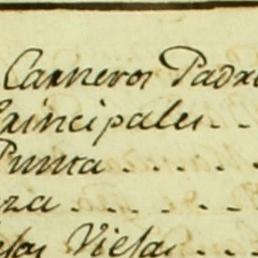 Carneros Padre
Principales..
Punta.....
za......
esas Viejas...